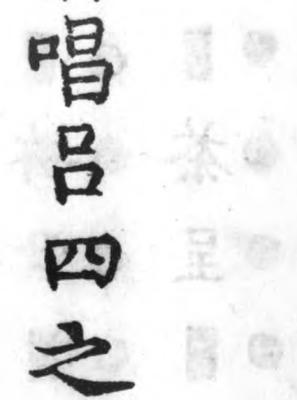 唱呂四之